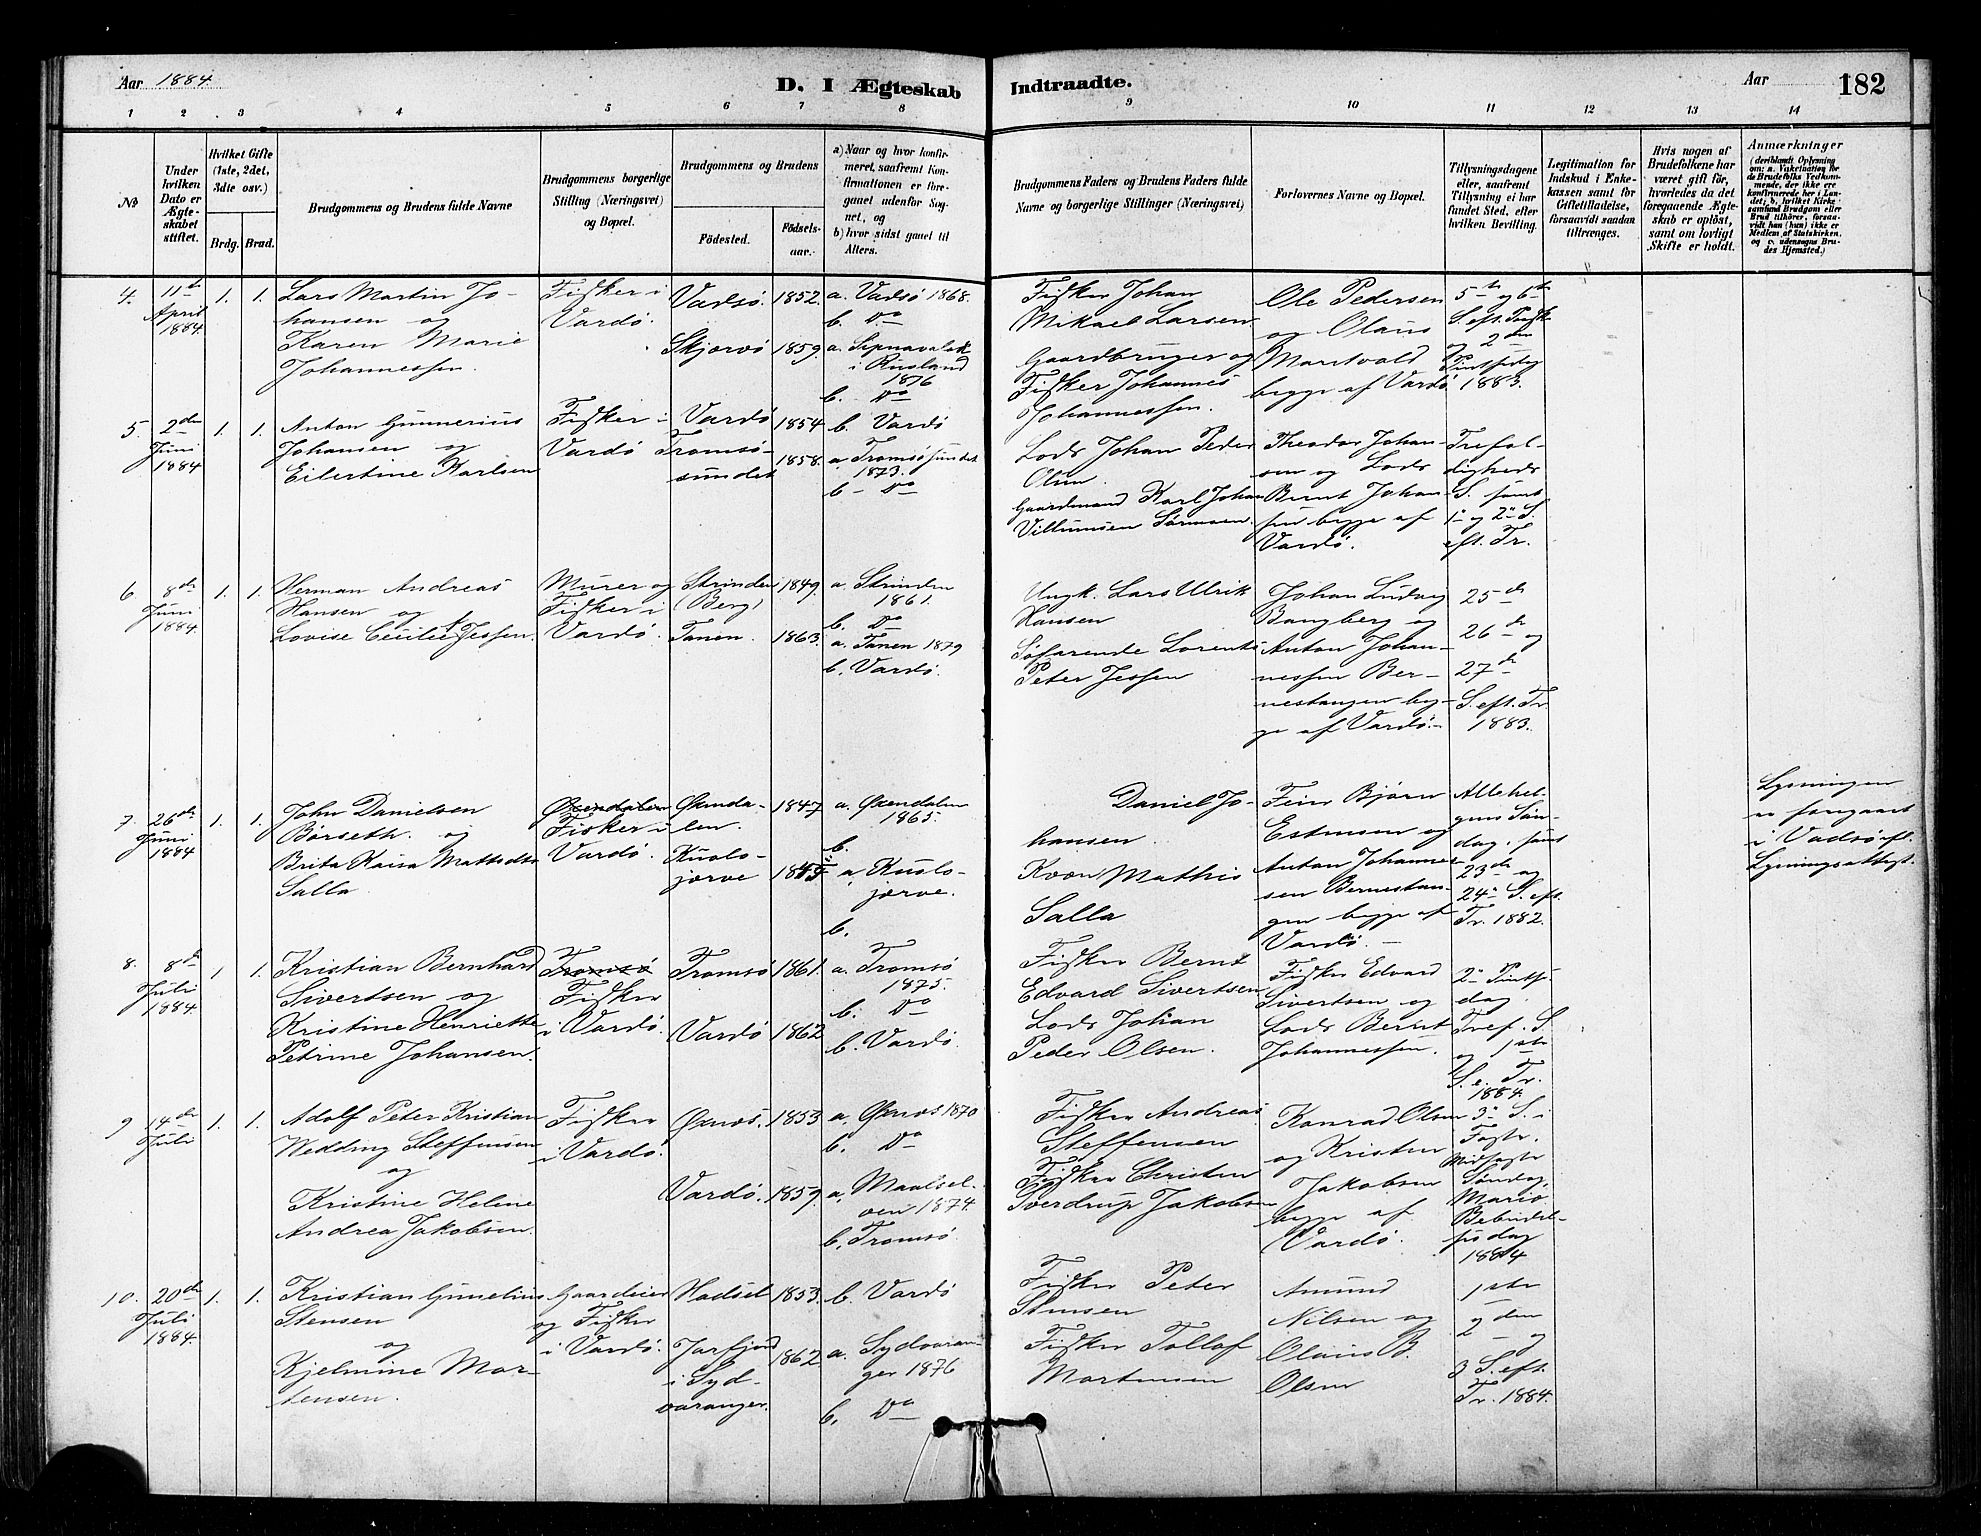 Aar 1884.
D. I Ægteskab Indtraadte.
Aar
182
1 2 3 4 5 6 7 8 9 10 11 12 13 14
No
Under hvilken Dato er Ægteskabet stiftet.
Hvilket Gifte (1ste, 2det, 3die osv.)
Brdg. Brud.
Brudgommens og Brudens fulde Navne
Brudgommens borgerlige Stilling (Næringsvei) og Bopæl.
Brudgommens og Brudens
Födested.
Födsels-aar.
a) Naar og hvor konfirmeret, saafremt Konfirmationen er foregaaet udenfor Sognet, og
b) hvor sidst gaaet til Alters.
Brudgommens Faders og Brudens Faders fulde Navne og borgerlige Stillinger (Næringsvei)
Forlovernes Navne og Bopæl.
Tillysningsdagene eller, saafremt Tillysning ei har fundet Sted, efter hvilken Bevilling.
Legitimation for Indskud i Enkekassen samt for Giftetilladelse, forsaavidt saadan tiltrænges.
Hvis nogen af Brudefolkene har været gift för, hvorledes da det foregaaende Ægteskab er oplöst, samt om lovligt Skifte er holdt.
Anmærkninger
(deriblandt Oplysning om: a. Vakcination for de Brudefolks Vedkommende, der ikke ere konfirmerede her i Landet; b. hvilket Kirkesamfund Brudgom eller Brud tilhörer, forsaavidt han (hun) ikke er Medlem af Statskirken, og c. udensogns Brudes Hjemsted.)
4. 11te April 1884. 1. 1.
Lars Martin Johansen og
Karen Marie Johannessen.
Fisker i Vardö.
Vadsö. 1852. a. Vadsö 1868. b. Do
Skjervö 1859. a. i Rusland 1876 b. Do
Fisker Johan Mikael Larsen.
Gaardbruger og Fisker Johannes Johannessen.
Ole Pedersen og Olaus Maretvold begge af Vardö
5te og 6te S. eft. og 2den 1883.
5. 2den Juni 1884 1. 1.
Anton Gunnerius Johansen og
Eilertine Karlsen
Fisker i Vardö
Vardö 1854 b. Vardö
Tromsösundet 1858. a. Tromsösundet 1873. b. Do
Lods Johan Peder Olsen.
Gaardmand Karl Johan Villumsen Sörensen.
Theodor Johansen og Lods Bernt Johansen begge af Vardö.
Trefoldigheds S. samt 1e og 2e S. eft. Tr.
6. 8de Juni 1884. 1. 1.
Herman Andreas Hansen og
Lovise Cecilie Jessen.
Murer og Fisker i Vardö.
Strinden (Berg) 1849. a. Strinden 1861. b. Do
Tanen. 1863. a. Tanen 1879 b. Vardö.
Ungk. Lars Ulrik Hansen
Söfarende Lorents Peter Jessen
Johan Ludvig Bangberg og Anton Johannessen Bernestangen begge af Vardö.
25de 26de og 27de S. eft. Tr. 1883.
7. 26de Juni 1884 1. 1.
John Danielsen Börseth. og
Brita Kaisa Mattsdtr Salla
Öxendalen Fisker i Vardö.
Öxendalen. 1847 a. Öxendalen 1865. b.
Kuolojærve a. Kuolojærve. b.
Daniel Johansen.
Kvæn Mathis Salla
Estensen og Anton Johannessen Bernestangen begge af Vardö.
Allehelgens Söndag, samt 23de og 24de S. eft. Tr. 1882.
Lysningen er foregaaet i Vadsö efl. Lysningsattest.
8. 8de Juli 1884. 1 1.
Kristian Bernhard Sivertsen og
Kristine Henriette Petrine Johansen.
Tromsö Fisker i Vardö.
Tromsö 1861. a. Tromsö 1875. b. Do
Vardö 1862 b. Vardö.
Fisker Bernt Edvard Sivertsen
Lods Johan Peder Olsen.
Fisker Edvard Sivertsen og Lods Bernt Johannessen.
2e Pintsedag. Tref. S. og 1ste S. e. Tr. 1884.
9 14de Juli 1. 1.
Adolf Peter Kristian Wedding Steffensen og
Kristine Helene Andrea Jakobsen.
Fisker i Vardö.
Öxnes. 1853 a. Öxnes 1870 b. Do
Vardö. 1859. a. Maalselven 1874. b. Tromsö
Fisker Andreas Steffensen
Fisker Christen Sverdrup Jakobsen
Konrad Olsen og Kristen Jakobsen begge af Vardö.
3e S. i Faste. Midfaste Söndag, Mariæ Bebudelsesdag 1884
10. 20de Juli 1884. 1. 1.
Kristian Gunelius Stensen og
Kjelmine Mortensen.
Gaardeier og Fisker i Vardö.
Hadsel 1853. b. Vardö
Jarfjord i Sydvaranger. 1862 a. Sydvaranger 1876 b. Do
Fisker Peter Stensen
Fisker Tollof Mortensen
Amund Nilsen og Olaus B. Olsen
1ste 2den og 3 S. eft. Tr. 1884.